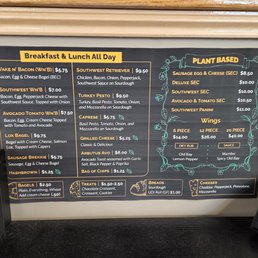 Breakfast & Lunch All Day
Wake n' Bacon (WnB) $6.75
Bacon, Egg & Cheese Bagel (BEC)
Southwest WnB $7.00
Bacon, Egg, Pepperjack Cheese with
Southwest Sauce, Topped with Onion
Avocado Tomato WnB $7.50
Bacon, Egg, Cheese Topped with
Tomato and Avocado
Lox Bagel $9.75
Bagel with Cream Cheese, Salmon
Lox, Topped with Capers
Sausage Breakie $5.75
Sausage, Egg & Cheese Bagel
Hashbrown $1.25
Southwest Retriever $9.50
Chicken, Bacon, Onion, Pepperjack,
Southwest Sauce on Sourdough
Turkey Pesto $9.50
Turkey, Basil Pesto, Tomato, Onion,
and Mozzarella on Sourdough
Caprese $6.75
Basil Pesto, Tomato, Onion, and
Mozzarella on Sourdough
Grilled Cheese $5.25
Classic & Delicious
Arbutus Avo $8.00
Avocado Toast seasoned with Garlic
Salt, Black Pepper & Paprika
Bag of Chips $1.25
Bagels $2.50
Plain, Everything, Wheat
Add cream cheese (.50)
Treats $1.50-2.50
Chocolate Croissant,
Muffin, Cookie
Breads
Sourdough
LEX Roll (GF) $1.00
Cheeses
Cheddar, Pepperjack, Provolone,
Mozzarella
Plant Based
Sausage Egg & Cheese (SEC) $8.50
Deluxe SEC $10.00
Southwest SEC $10.00
Avocado & Tomato SEC $10.50
Southwest Panini $11.00
Wings
6 piece 12 piece 20 piece
$14.00 $26.00 $40.00
Dry Rub Sauce
Old Bay Mambo
Lemon Pepper Spicy Old Bay